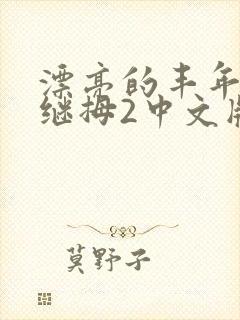 漂亮的丰年
继拇2中文
莫野子